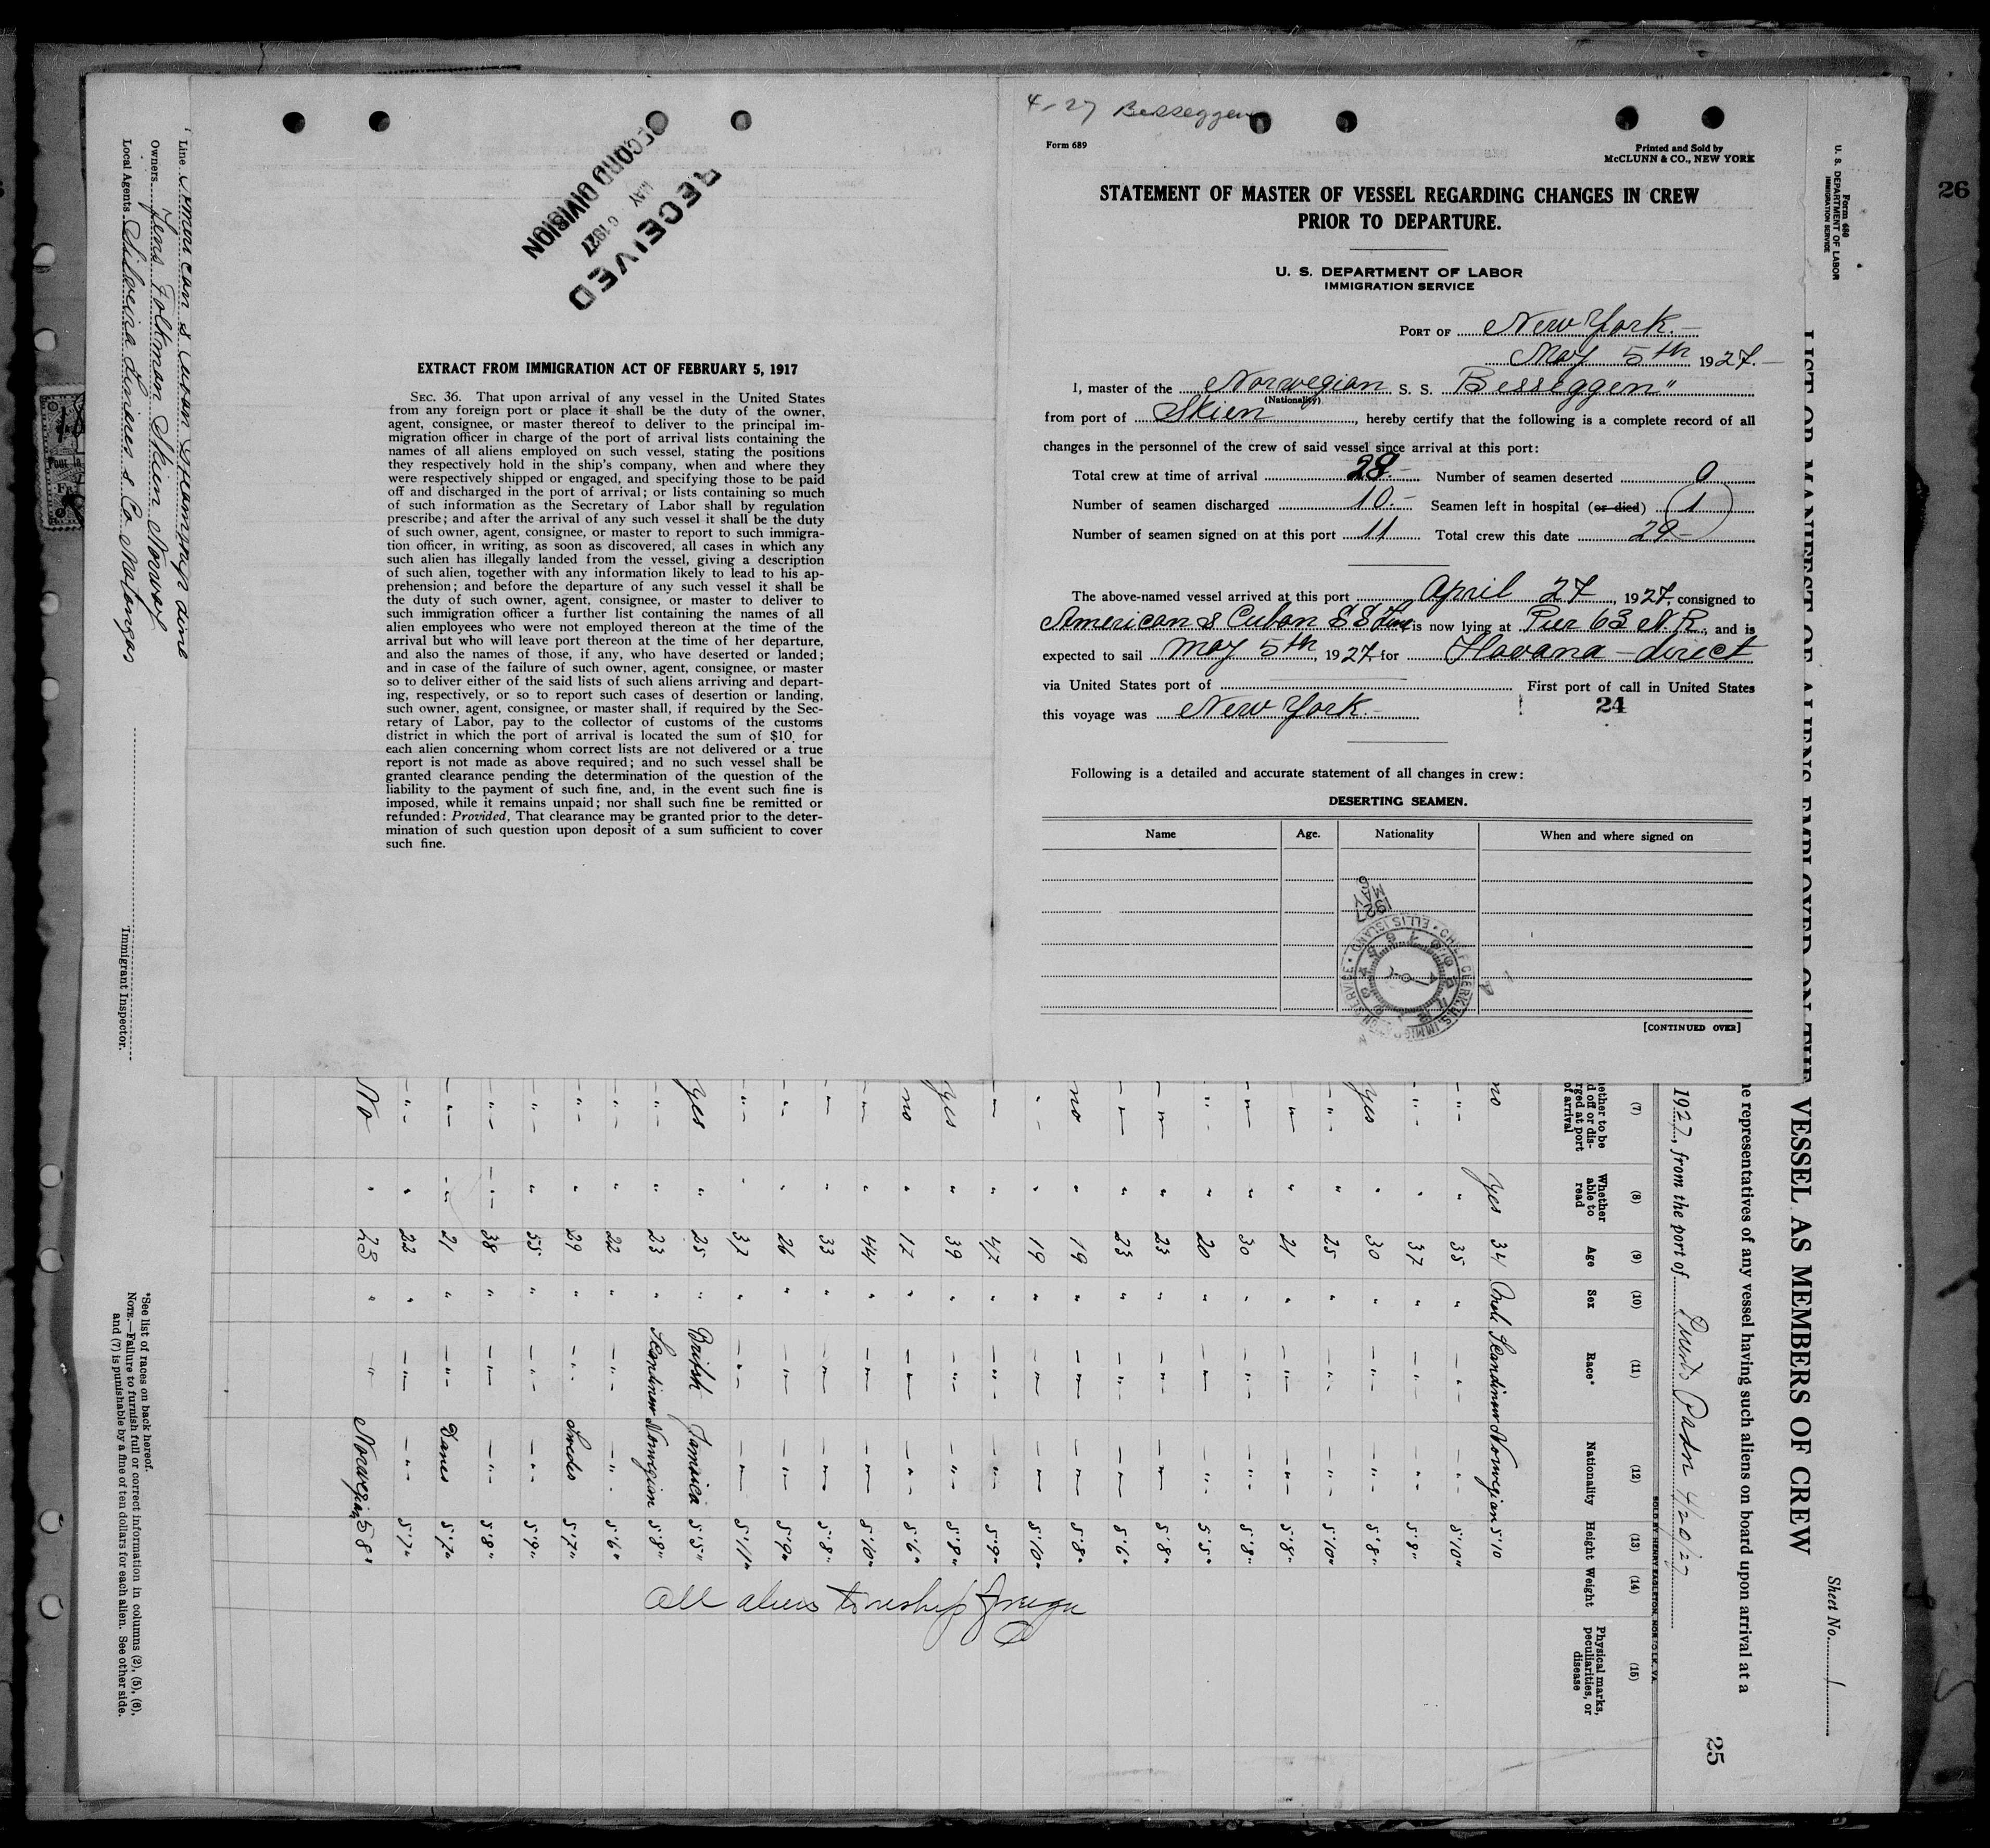 4-27 Besseggen
Form 689
Printed and Sold by
McCLUNN & CO., NEW YORK
STATEMENT OF MASTER OF VESSEL REGARDING CHANGES IN CREW
PRIOR TO DEPARTURE.
U. S. DEPARTMENT OF LABOR
IMMIGRATION SERVICE
PORT OF New York.
May 5th 1927.
I, master of the Norwegian S. S. Besseggen"
(Nationality)
from port of Skien, hereby certify that the following is a complete record of all
changes in the personnel of the crew of said vessel since arrival at this port:
Total crew at time of arrival 28.- Number of seamen deserted 0
Number of seamen discharged 10.- Seamen left in hospital (or died) 1
Number of seamen signed on at this port 11 Total crew this date 29-
The above-named vessel arrived at this port April 27, 1927, consigned to
American & Cuban S S Line is now lying at Pier 63 N.R., and is
expected to sail May 5th, 1927 for Havana - direct
via United States port of First port of call in United States
this voyage was New York.- 24
Following is a detailed and accurate statement of all changes in crew:
DESERTING SEAMEN.
Name Age. Nationality When and where signed on
[CONTINUED OVER]
RECEIVED
MAY 6 1927
RECORD DIVISION
EXTRACT FROM IMMIGRATION ACT OF FEBRUARY 5, 1917
SEC. 36. That upon arrival of any vessel in the United States
from any foreign port or place it shall be the duty of the owner,
agent, consignee, or master thereof to deliver to the principal im-
migration officer in charge of the port of arrival lists containing the
names of all aliens employed on such vessel, stating the positions
they respectively hold in the ship's company, when and where they
were respectively shipped or engaged, and specifying those to be paid
off and discharged in the port of arrival; or lists containing so much
of such information as the Secretary of Labor shall by regulation
prescribe; and after the arrival of any such vessel it shall be the duty
of such owner, agent, consignee, or master to report to such immigra-
tion officer, in writing, as soon as discovered, all cases in which any
such alien has illegally landed from the vessel, giving a description
of such alien, together with any information likely to lead to his ap-
prehension; and before the departure of any such vessel it shall be
the duty of such owner, agent, consignee, or master to deliver to
such immigration officer a further list containing the names of all
alien employees who were not employed thereon at the time of the
arrival but who will leave port thereon at the time of her departure,
and also the names of those, if any, who have deserted or landed;
and in case of the failure of such owner, agent, consignee, or master
so to deliver either of the said lists of such aliens arriving and depart-
ing, respectively, or so to report such cases of desertion or landing,
such owner, agent, consignee, or master shall, if required by the Sec-
retary of Labor, pay to the collector of customs of the customs
district in which the port of arrival is located the sum of $10. for
each alien concerning whom correct lists are not delivered or a true
report is not made as above required; and no such vessel shall be
granted clearance pending the determination of the question of the
liability to the payment of such fine, and, in the event such fine is
imposed, while it remains unpaid; nor shall such fine be remitted or
refunded: Provided, That clearance may be granted prior to the deter-
mination of such question upon deposit of a sum sufficient to cover
such fine.
26
25
Form 680
U. S. DEPARTMENT OF LABOR
IMMIGRATION SERVICE
Sheet No. 1
LIST OR MANIFEST OF ALIENS EMPLOYED ON THE VESSEL AS MEMBERS OF CREW
representatives of any vessel having such aliens on board upon arrival at a
1927, from the port of Puerto Padre 4/20/27
SOLD BY HENRY EAGLETON, NORFOLK, VA.
(7) (8) (9) (10) (11) (12) (13) (14) (15)
Whether able to read Age Sex Race* Nationality Height Weight Physical marks, peculiarities, or disease
no yes 34 Male Scandinav Norwegian 5'10
-"- " 35 " -"- -"- 5'10"
-"- " 37 " -"- -"- 5'8"
yes " 30 " -"- -"- 5'8"
-"- " 25 " -"- -"- 5'10"
-"- " 21 " -"- -"- 5'8"
-"- " 30 " -"- -"- 5'8"
-"- " 20 " -"- -"- 5'5"
-"- " 23 " -"- -"- 5'8"
-"- " 23 " -"- -"- 5'6"
no " 19 " -"- -"- 5'8"
-"- " 19 " -"- -"- 5'10"
-"- " 47 " -"- -"- 5'9"
yes " 39 " -"- -"- 5'8"
no " 17 " -"- -"- 5'6"
-"- " 44 " -"- -"- 5'10"
-"- " 33 " -"- -"- 5'8"
-"- " 26 " -"- -"- 5'9"
-"- " 37 " -"- -"- 5'11"
yes " 25 " British Jamaica 5'5"
-"- " 23 " Scandinav Norwegian 5'8"
-"- " 22 " -"- -"- 5'6"
-"- " 29 " -"- Swedes 5'7"
-"- " 55 " -"- -"- 5'9"
-"- -"- 38 " -"- -"- 5'8"
-"- -"- 21 " -"- Danes 5'7"
-"- " 22 " -"- -"- 5'7"
No " 23 " -"- Norwegian 5'8"
All aliens to reship foreign
Line American & Cuban Steamship Line
Owners Jens Folkman Skien Norway
Local Agents
Immigrant Inspector.
*See list of races on back hereof.
NOTE.—Failure to furnish full or correct information in columns (2), (5), (6),
and (7) is punishable by a fine of ten dollars for each alien. See other side.